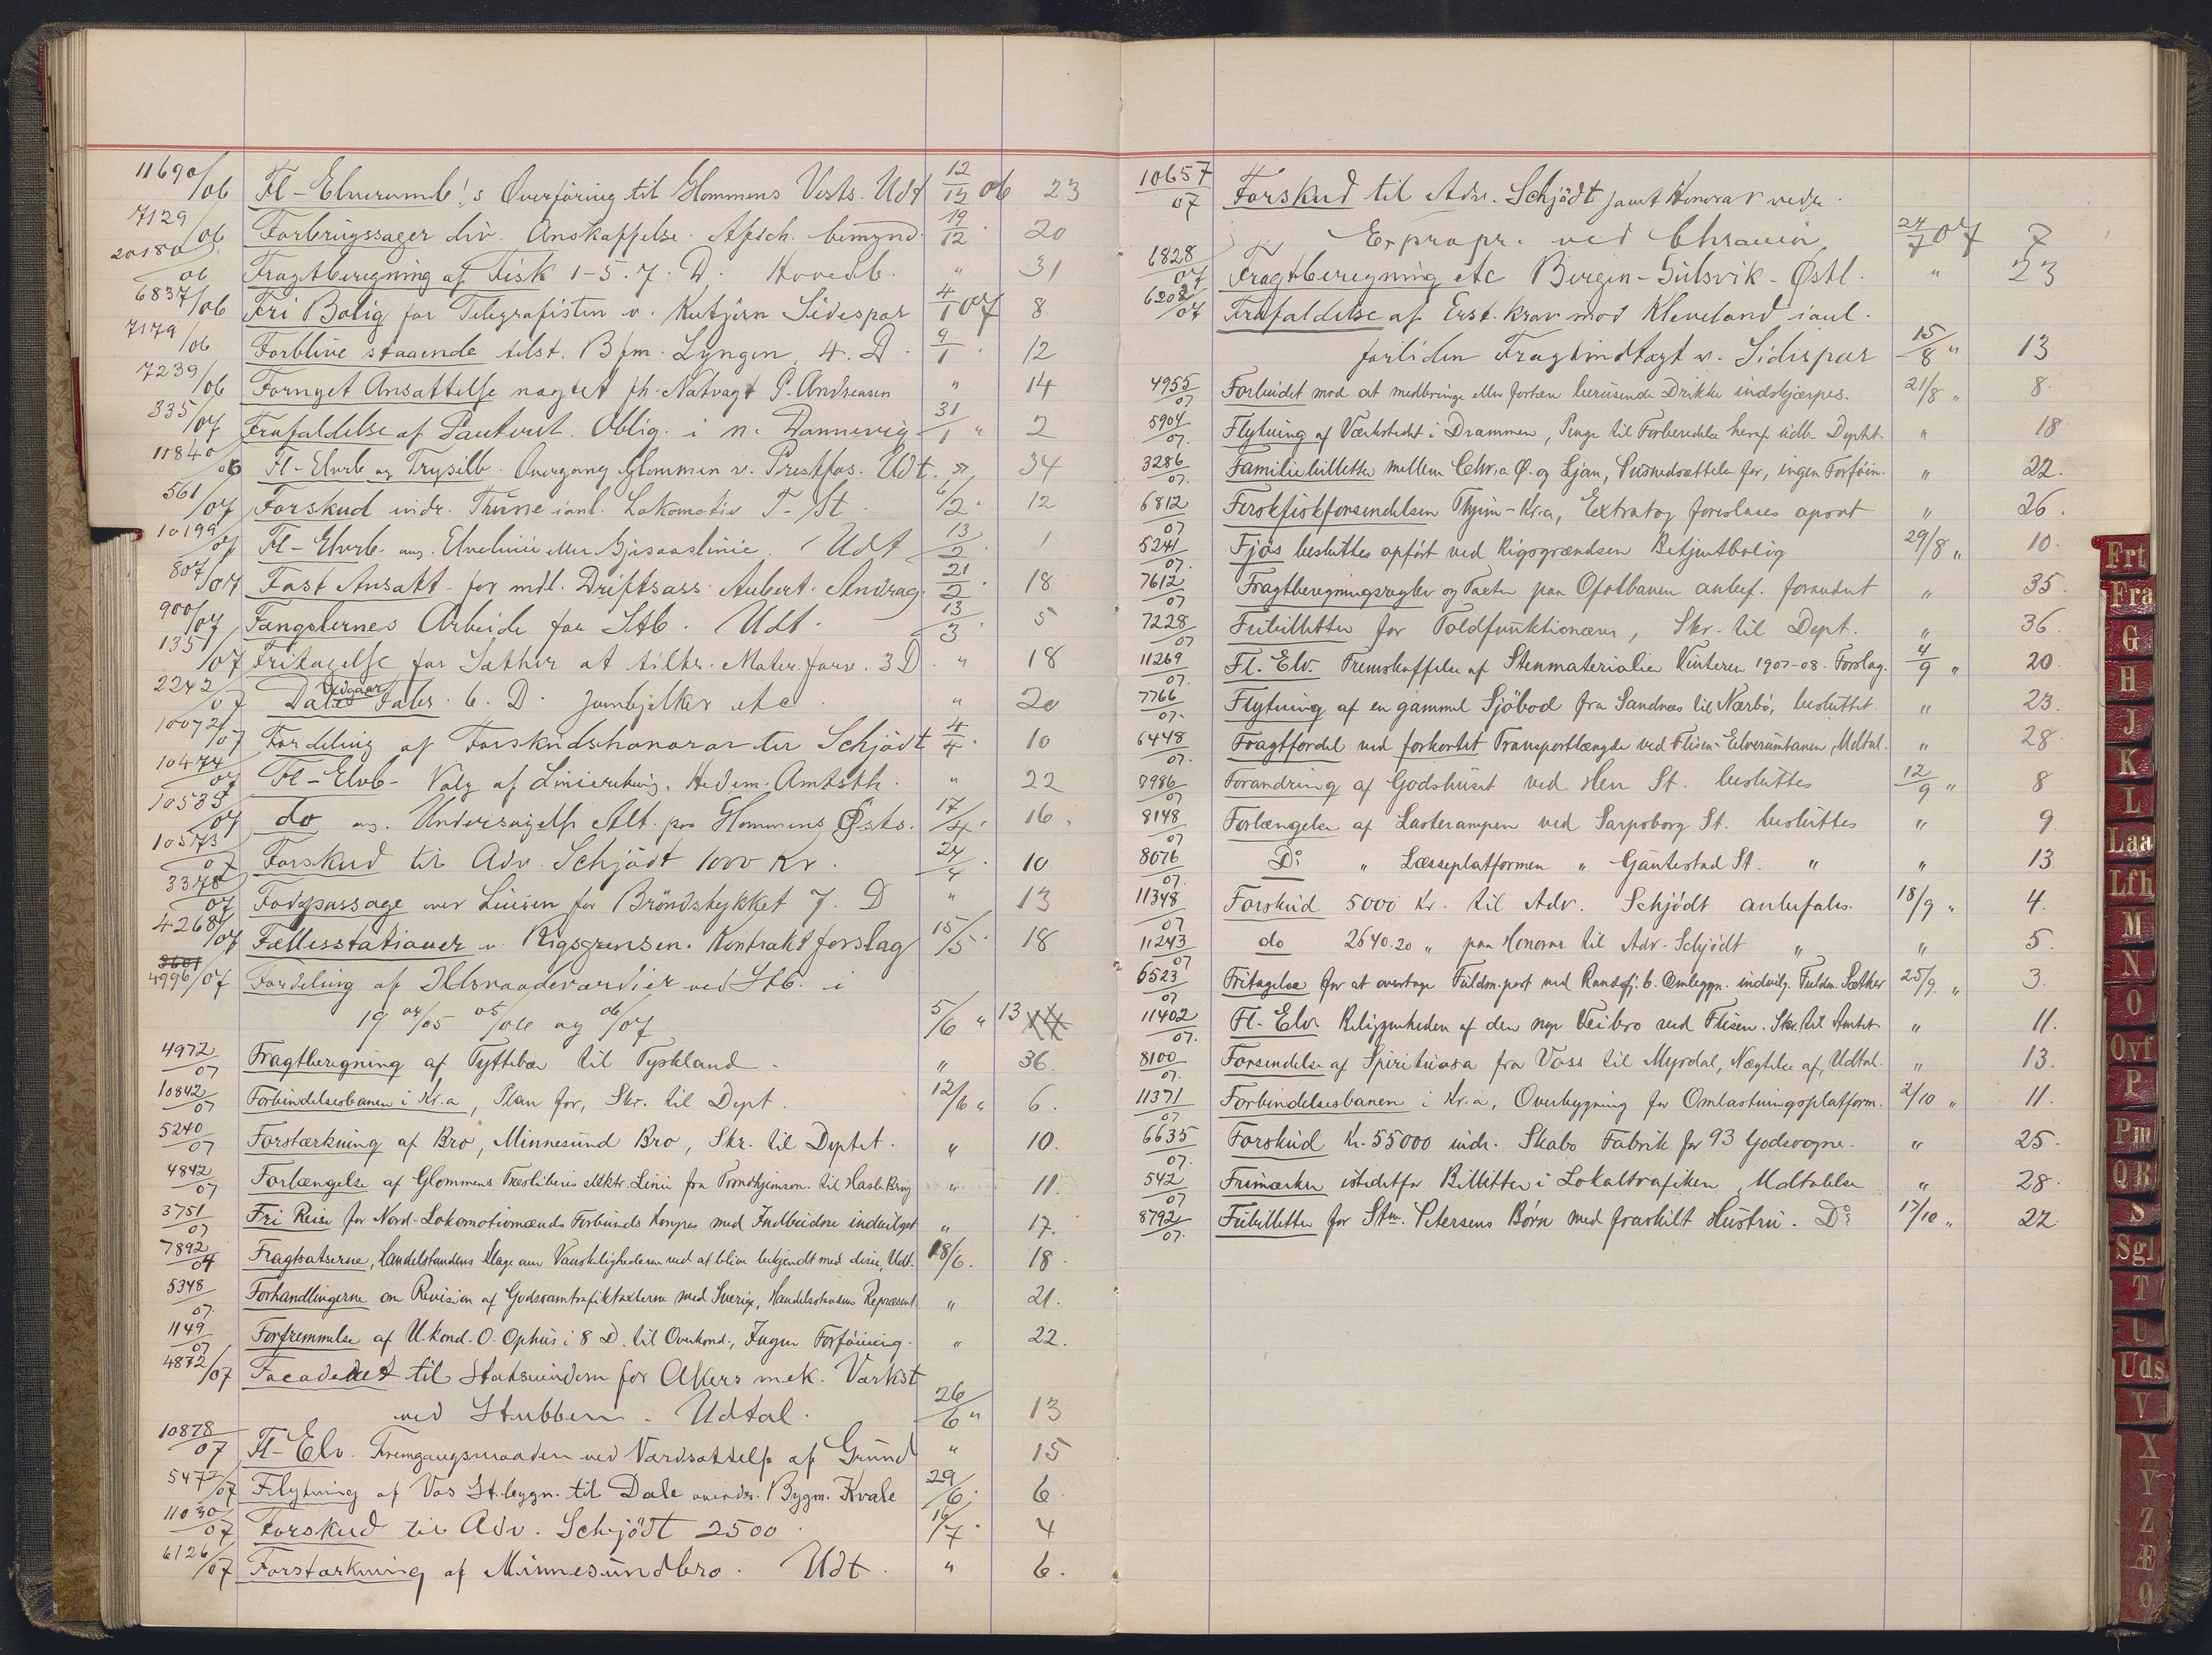 11690/06 Fl-Elverumb!s Overföring til Glommens Vests. Udt 12/12 06 23
7129/06 Forbrugssager div. Anskaffelse. Afsch. bemynd. 19/12 " 20
20180/06 Fragtberegning af Fisk 1-5. 7. D. Hovedb. " 31
6837/06 Fri Bolig for Telegrafisten v. Sidespor 4/1 07 8
7179/06 Forblive staaende tilst. Bfm. Lyngen, 4. D. 9/1 " 12
7239/06 Fornyet Ansættelse nægtet fh. Natvagt P. Andreasen " 14
335/07 Frafaldelse af Panteret. Oblig. i n. Dannevig 31/1 " 2
11840/06 Fl-Elvrb og Trysilb. Overgang Glommen v. Prestfos. Udt. " 34
561/07 Forskud vedr. Thune ianl. Lokomotiv T- St 6/2 " 12
10199/07 Fl-Elvrb. ang. Elvelinie eller Gjesaaslinie. Udt 13/2 1
807/07 Fast Ansætt. for mdl. Driftsass. Aubert. Andrag. 21/2 " 18
900/07 Fangslernes Arbeide for Stb. Udt. 13/3 " 5
1351/07 Fritagelse for Sæther at tiltr. Mater. forv. 3 D. " 18
2242/07 Dale Vedgaar Fabr. 6. D. Jernbjelker etc " 20
10072/07 Fordeling af Forskudshonorar til Schjödt 4/4 " 10
10474/07 Fl-Elvb- Valg af Linieretning. Hedem. Amtsth. " 22
10535/07 do ang. Undersögelse Alt. paa Glommens Østs. 17/4 " 16.
10573/07 Forskud til Adv. Schjödt 1000 Kr. 24/4 " 10
3378/07 Fodpassage over Linien for Bröndstykket 7. D " 13
4268/07 Fællesstationer v. Rigsgrænsen. Kontraktforslag 15/5 " 18
3601
4996/07 Fordeling af Ildsvaadeværdier ved Stb. i
19 04/05 05/06 og 06/07 5/6 " 13
4972/07 Fragtberegning af Tyttebær til Tyskland. " 36.
10842/07 Forbindelsesbanen i Kr.a, Plan for, Skr. til Dept. 12/6 " 6.
5240/07 Forstærkning af Bro, Minnesund Bro, Skr. til Deptet. " 10.
4842/07 Forlængelse af Glommens Træsliberis elektr. Linie fra Trondhjemson. til Hasle Brug " 11.
3751/07 Fri Reise for Nord. Lokomotivmænds Forbunds Kongres med Indbudne indvilget " 17.
7892/07 Fragtsatserne, Handelsstandens Klage over Vanskelighederne ved at blive bekjendt med disse, Udt. 18/6. 18.
5348/07. Forhandlingerne om Revision af Godssamtrafiktaxterne med Sverige, Handelsstandens Repræsent. " 21.
1149/07 Forfremmelse af U. kond. O. Ophus i 8 D. til Overkond., Ingen Forföining. " 22.
4872/07 Facade til Statseiendom for Akers mek. Værkst
ved Stubben. Udtal. 26/6 " 13
10878/07 Fl-Elv. Fremgangsmaaden ved Værdsættelse af Grund " 15
5472/07 Flytning af Vos St.bygn. til Dale Bygm. Kvale 29/6 " 6.
11030/07 Forskud til Adv. Schjödt 2500. 16/7 " 4
6126/07 Forstærkning af Minnesundbro. Udt. " 6.
10657/07 Forskud til Adv. Schjödt samt Honorar vedr.
Expropr. ved Chrania 24/7 07 7
1828/07 Fragtberegning etc Bergen-Gulsvik-Østl. " 23
6202/07 Frafaldelse af Erst. krav mod Kleveland ianl.
forliden Fragtindtægt v. Sidespor 15/8 " 13
4955/07 Forbudet mod at medbringe eller fortære berusende Drikke indskjærpes. 21/8 " 8.
5904/07. Flytning af Værkstedet i Drammen, Penge til Forberedelse heraf udb. Deptet. " 18.
3286/07. Familiebilletter mellem Chr.a Ø. og Ljan, Prisnedsættelse for, ingen Forföin. " 22.
6812/07 Ferskfiskforsendelsen Thjem-Kr.a, Extratog foreslaaes opsat " 26.
5241/07. Fjøs besluttes opfört ved Rigsgrændsen Betjentbolig 29/8 " 10.
7612/07 Fragtberegningsregler og Taxter paa Ofotbanen anbef. forandret " 35.
7228/07 Fribilletter for Toldfunktionærer, Skr. til Dept. " 36.
11269/07. Fl. Elv. Fremskaffelse af Stenmaterialer Vinteren 1907-08. Forslag. 4/9 " 20.
7766/07. Flytning af en gammel Sjöbod fra Sandnæs til Nærbö, besluttet. " 23.
6448/07. Fragtfordel ved forkortet Transportlængde ved Flisen-Elverumbanen, Udtal. " 28.
7986/07 Forandring af Godshuset ved Hen St. besluttes 12/9 " 8
8148/07 Forlængelse af Lasterampen ved Sarpsborg St. besluttes " 9.
8076/07. Do " Læsseplatformen " Gautestad St. " " 13.
11348/07 Forskud 5000 Kr. til Adv. Schjödt anbefales. 18/9 " 4.
11243/07 do 2640.20 " paa Honorar til Adv. Schjödt " " 5.
6523/07 Fritagelse for at overtage Fuldm.post ved Randsfj. b. Ombyggn. indvilg. Fuldm. Sæther 25/9 " 3.
11402/07. Fl. Elv. Beliggenheden af den nye Veibro ved Flisen. Skr. til Amtet " 11.
8100/07. Forsendelse af Spirituosa fra Voss til Myrdal, Nægtelse af, Udtal. " 13.
11371/07 Forbindelsesbanen i Kr.a, Overbygning for Omlastningsplatform. 2/10 " 11.
6635/07. Forskud Kr. 55000 indr. Skabo Fabrik for 93 Godsvogne. " 25.
542/07 Frimærker istedetfor Billetter i Lokaltrafiken, Udtalelse " 28.
8792/07. Fribilletter for Stm. Petersens Børn med fraskilt Hustru. Do 17/10 " 22
Frt
Fra
G
H
J
K
L
Laa
Lfh
M
N
O
Ovf
P
Pm
QR
S
Sgl
T
U
Uds
V
X
Y
Z
Æ
Ø